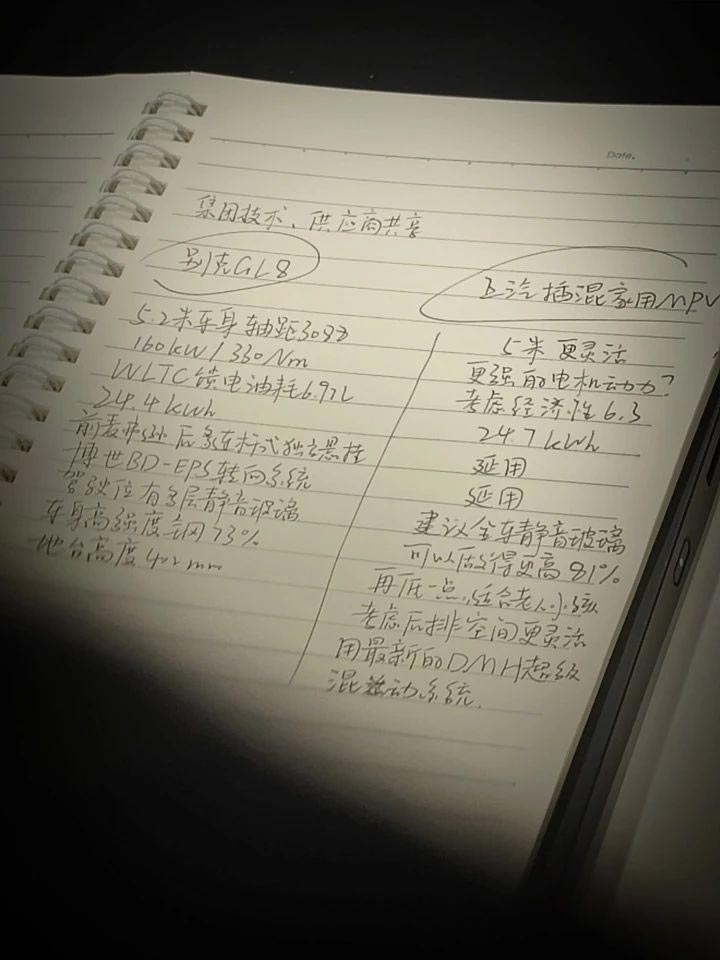 Date.
集团技术、供应商共享
别克GL8
上汽插混家用MPV
5.2米车身 轴距3088
160kW/330Nm
WLTC馈电油耗6.97L
24.4kWh
前麦弗逊后多连杆式独立悬挂
博世BD-EPS转向系统
驾驶位有多层静音玻璃
车身高强度钢73%
地台高度422mm
5米 更灵活
更强的电机动力?
考虑经济性6.3
24.7kWh
延用
延用
建议全车静音玻璃
可以做得更高81%
再低一点,适合老人小孩
考虑后排空间更灵活
用最新的DMH超级
混动系统.